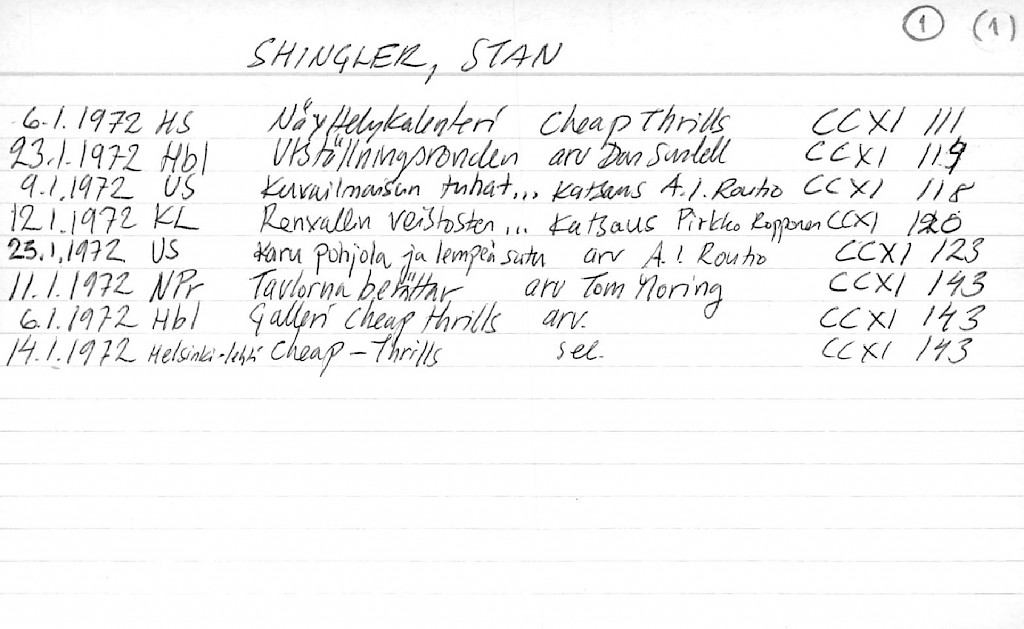 ① (1)
SHINGLER, STAN
6.1.1972 HS Näyttelykalenteri Cheap Thrills CCXI 111
23.1.1972 Hbl Utställningsronden arv Dan Sundell CCXI 119
9.1.1972 US Kuvailmaisun tuhat... Katsaus A.I. Routio CCXI 118
12.1.1972 KL Renvallin veistosten... Katsaus Pirkko Ropponen CCXI 120
25.1.1972 US Karu Pohjola ja lempeä satu arv A.I. Routio CCXI 123
11.1.1972 NPr Tavlorna berättar arv Tom Noring CCXI 143
6.1.1972 Hbl Galleri Cheap Thrills arv. CCXI 143
14.1.1972 Helsinki-lehti Cheap-Thrills sel. CCXI 143